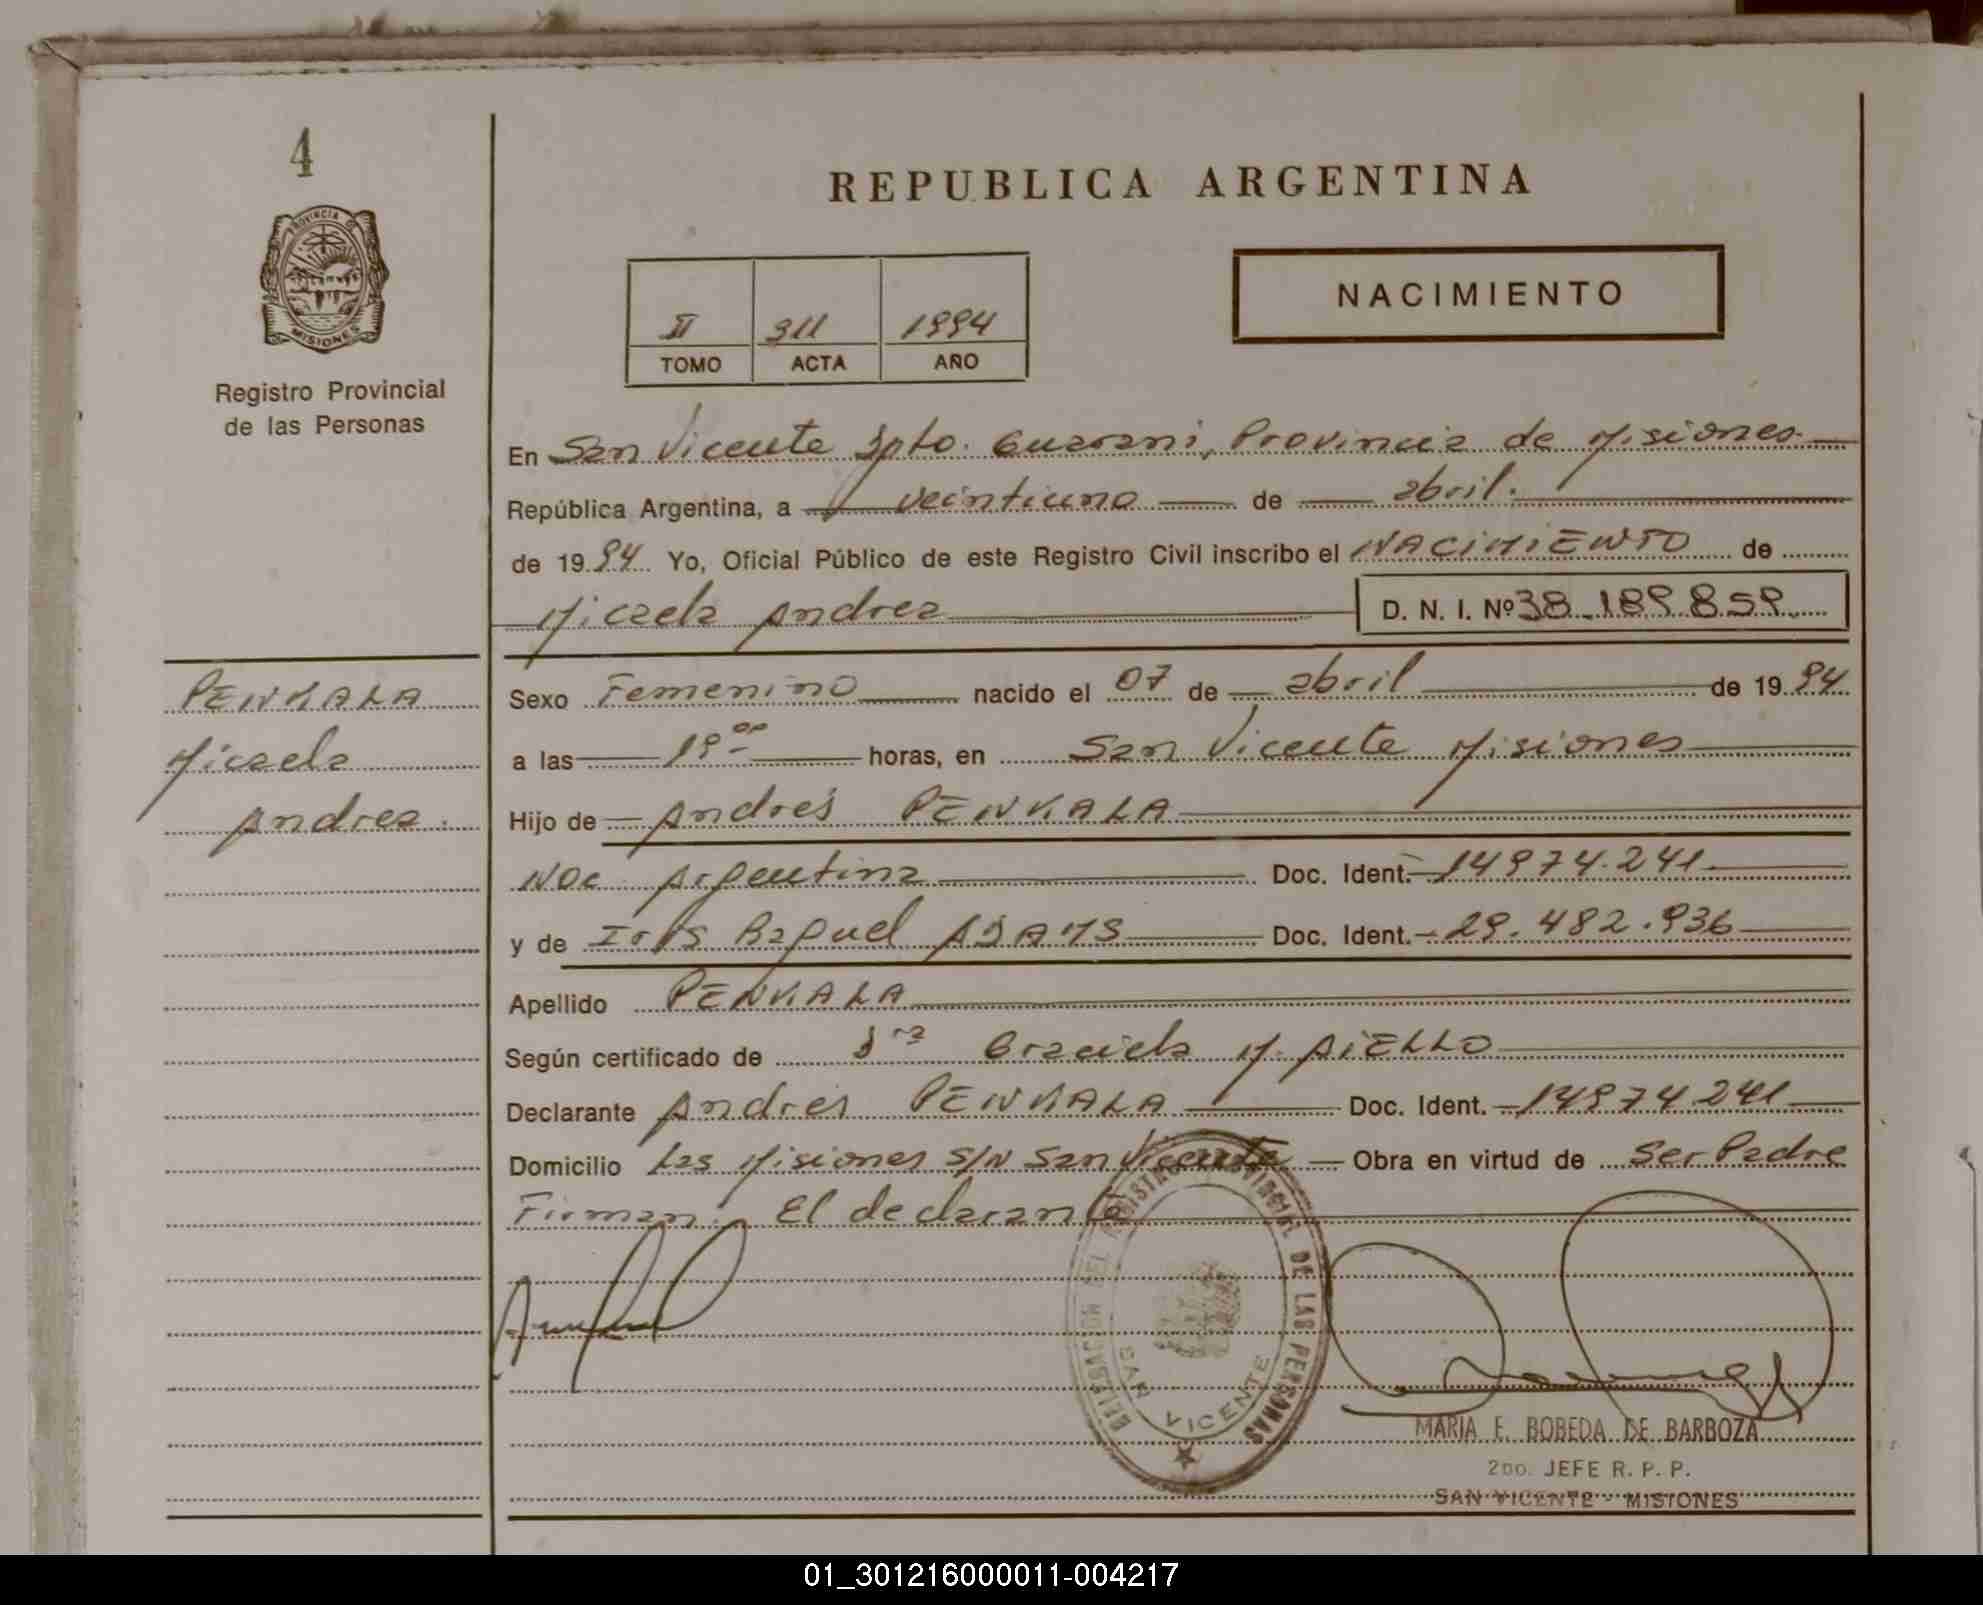 4
REPUBLICA ARGENTINA
PROVINCIA DE
MISIONES
NACIMIENTO
II 311 1994
TOMO ACTA AÑO
Registro Provincial
de las Personas
En San Vicente Dpto. Guarani, Provincia de Misiones
República Argentina, a veintiuno de abril.
de 1994 Yo, Oficial Público de este Registro Civil inscribo el NACIMIENTO de
Micaela Andrea D. N. I. Nº 38.189.859
PENKALA
Micaela
Andrea.
Sexo Femenino nacido el 07 de abril de 1994
a las 19 00 horas, en San Vicente Misiones
Hijo de Andrés PENKALA
Nac. Argentina Doc. Ident. 14974.241
y de Iris Raquel ADAMS Doc. Ident. 29.482.936
Apellido PENKALA
Según certificado de Dra Graciela M. AIELLO
Declarante Andrés PENKALA Doc. Ident. 14974241
Domicilio Las Misiones S/N San Vicente Obra en virtud de Ser Padre
Firman: El declarante
DELEGACION DEL REGISTRO PROVINCIAL DE LAS PERSONAS
SAN VICENTE
MARIA E. BOBEDA DE BARBOZA
2DO. JEFE R. P. P.
SAN VICENTE - MISIONES
01_301216000011-004217